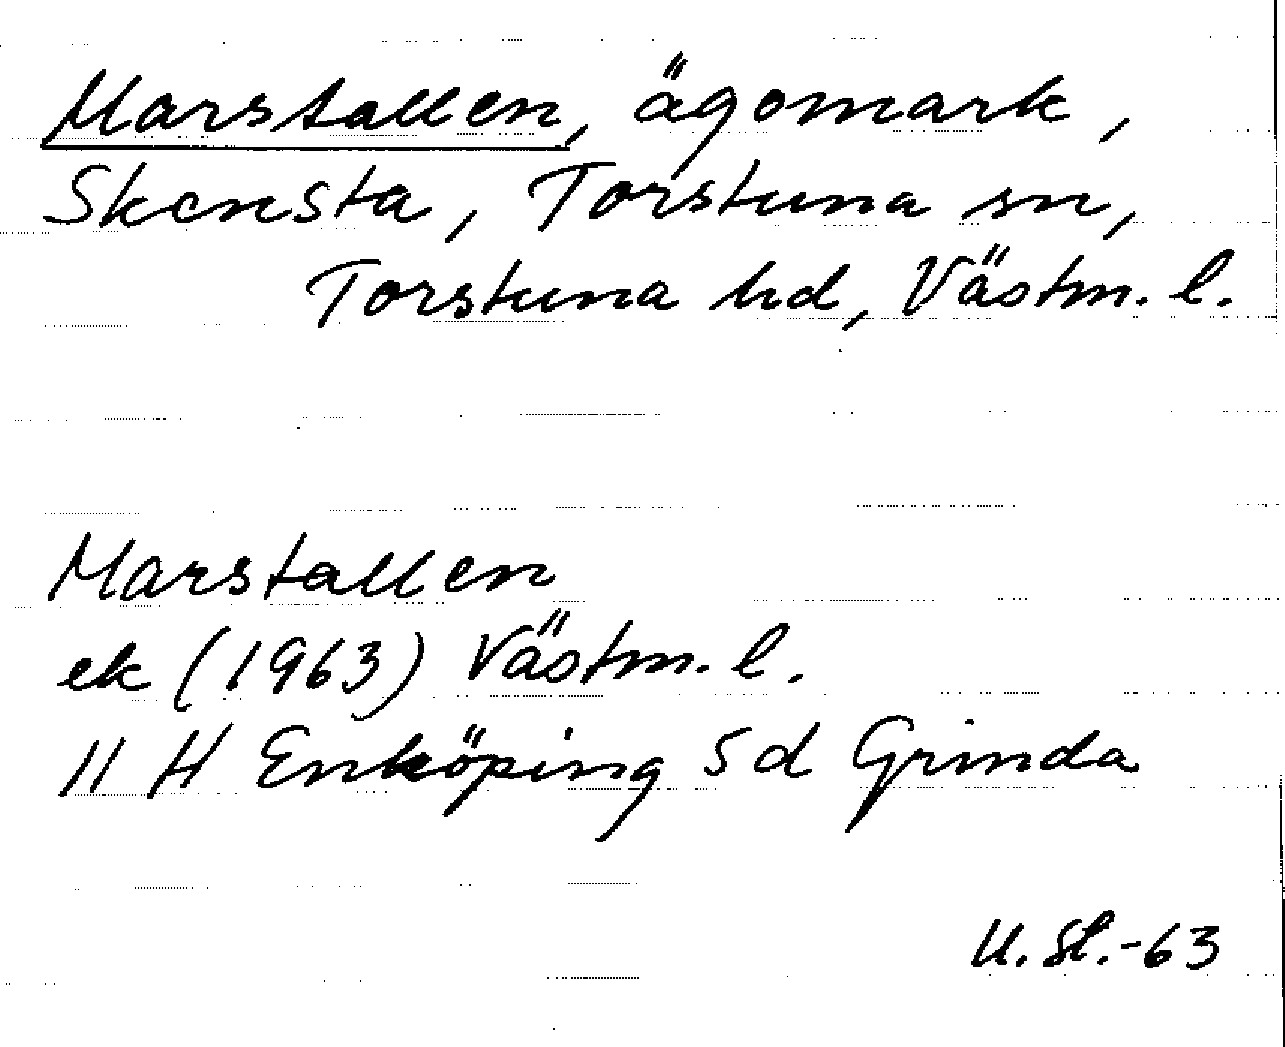 Marstallen, ägomark,
Skensta, Torstuna sn,
Torstuna hd, Västm. l.
Marstallen
ek (1963) Västm. l.
11 H Enköping 5 d Grinda
U. Sl. -63